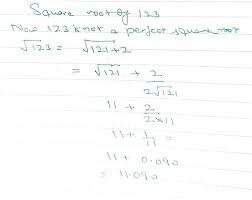 Square root of 123
Now 123 is not a perfect square root
√123 = √121+2
= √121 + 2/2√121
11 + 2/2×11
11 + 1/11 =
11 + 0.090
= 11.090